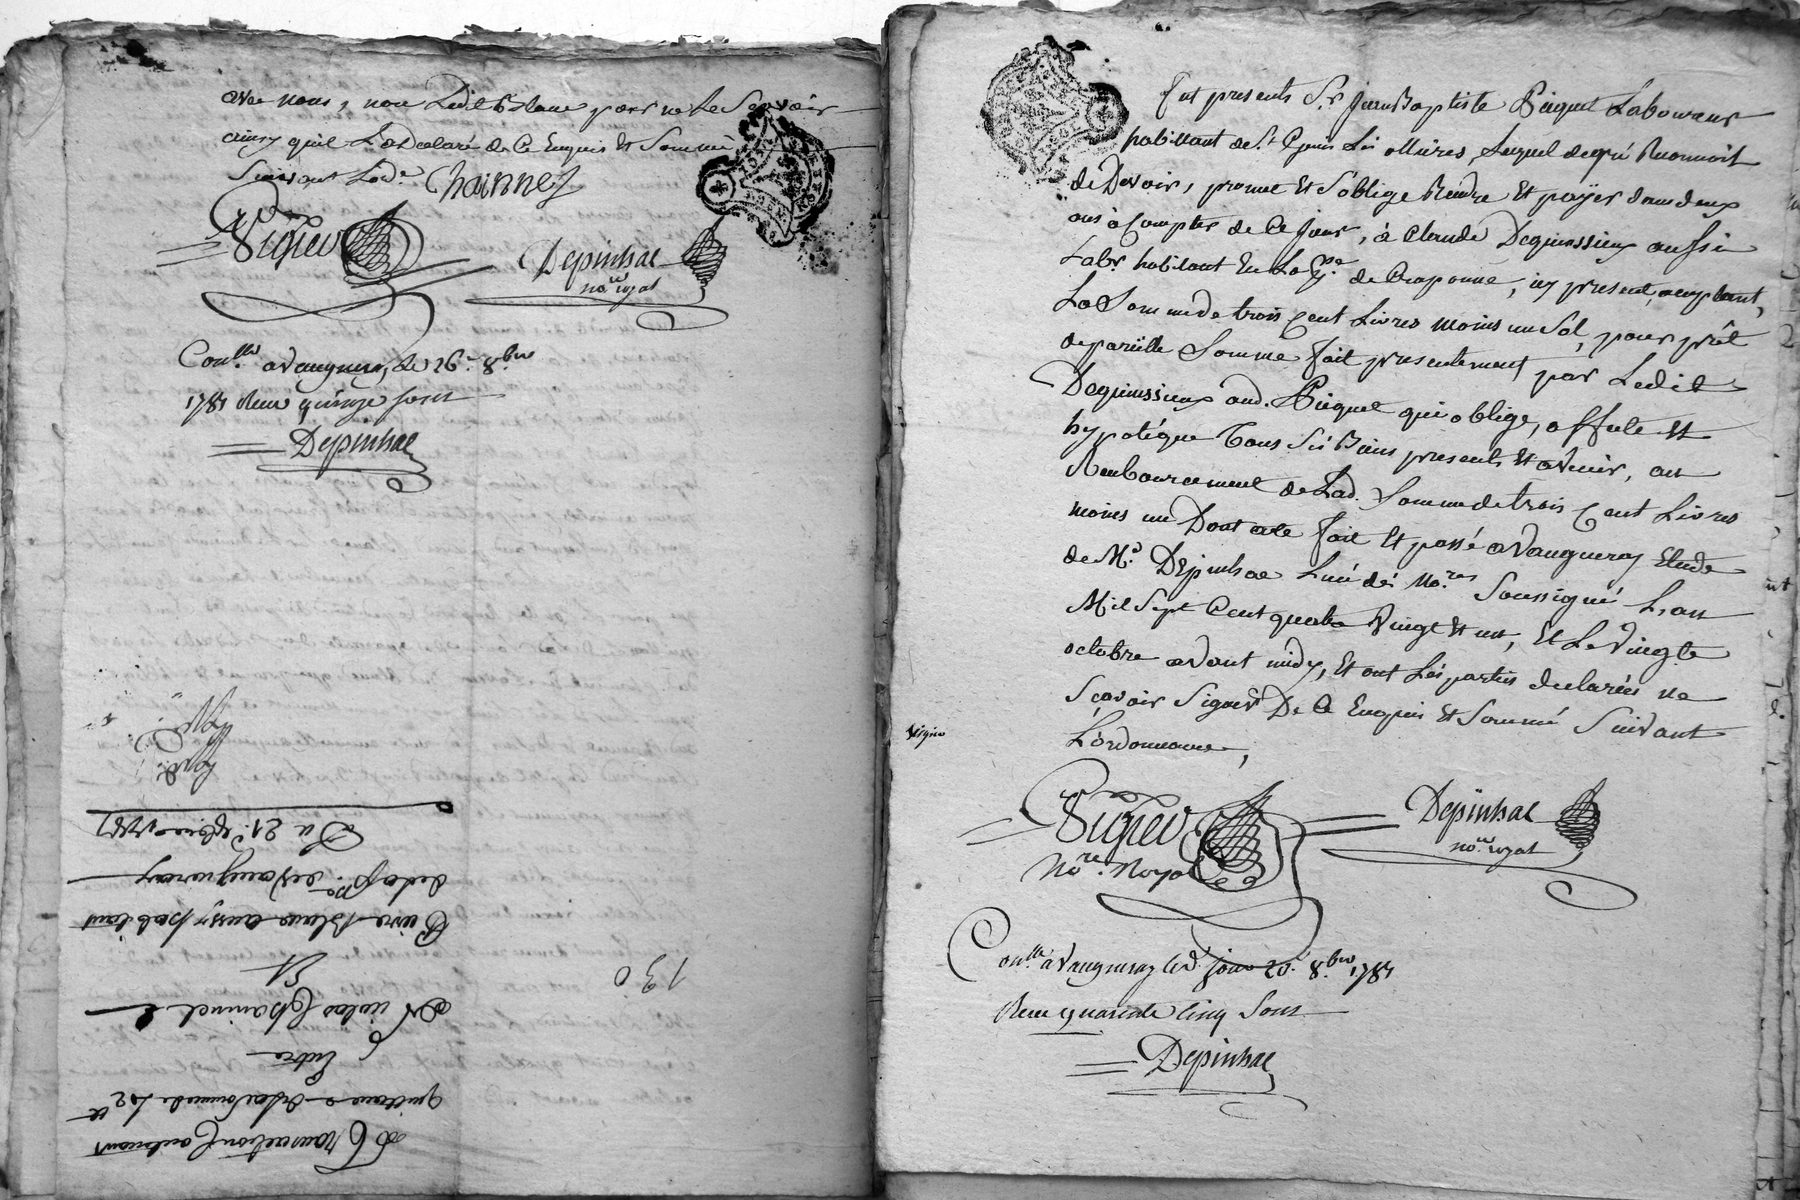 avec nous, non Ledit Blanc pour ne le Scavoir
ainsy quil L'a declaré de Ce Enquis et Sommé
Suivant Lod.e Chainnel
Vigier
Depinhac
no.re royal
Con.llé a Vaugneray le 26.e 8.bre
1781 Reçu quinze sous
Depinhac
Du 21.e 8bre 1781
de la p.sse de Vaugneray
Blanc aussy habitant
Et
Nicolas Chainnel
Entre
quittance de la somme de 102 ₶
Transaction contenant
130
Fut present S.r Jean Baptiste Piegut Laboureur
habittant de S.t Genis Les ollieres, Lequel de gré Reconnoit
de Devoir, promet Et S'oblige Rendre Et payer dans deux
ans à Compter de Ce Jour, à Claude Deguirssieux aussi
Lab.r habitant En La p.sse de Craponne, icy present, acceptant,
La Somme de trois Cent Livres moins un Sol, pour prêt
de pareille Somme fait presentement par Ledit
Deguirssieux aud. Piegut qui oblige, affecte Et
hypotéque Tous Ses Biens presents Et avenir, au
Rembourcement de Lad. Somme de trois Cent Livres
moins un Dont acte fait Et passé a Vaugneray Etude
de M.e Depinhac L'un des No.res Soussigné L'an
Mil Sept Cent quatre Vingt Et un, Et Le Vingt
octobre avant midy, Et ont Les parties declarées ne
Scavoir Signer De Ce Enquis Et Sommé Suivant
L'ordonnance,
Vigier
No.re Royal
Depinhac
no.re royal
Con.llé à Vaugneray led. jour 20.e 8.bre 1781
Reçu quarante Cinq Sous
Depinhac